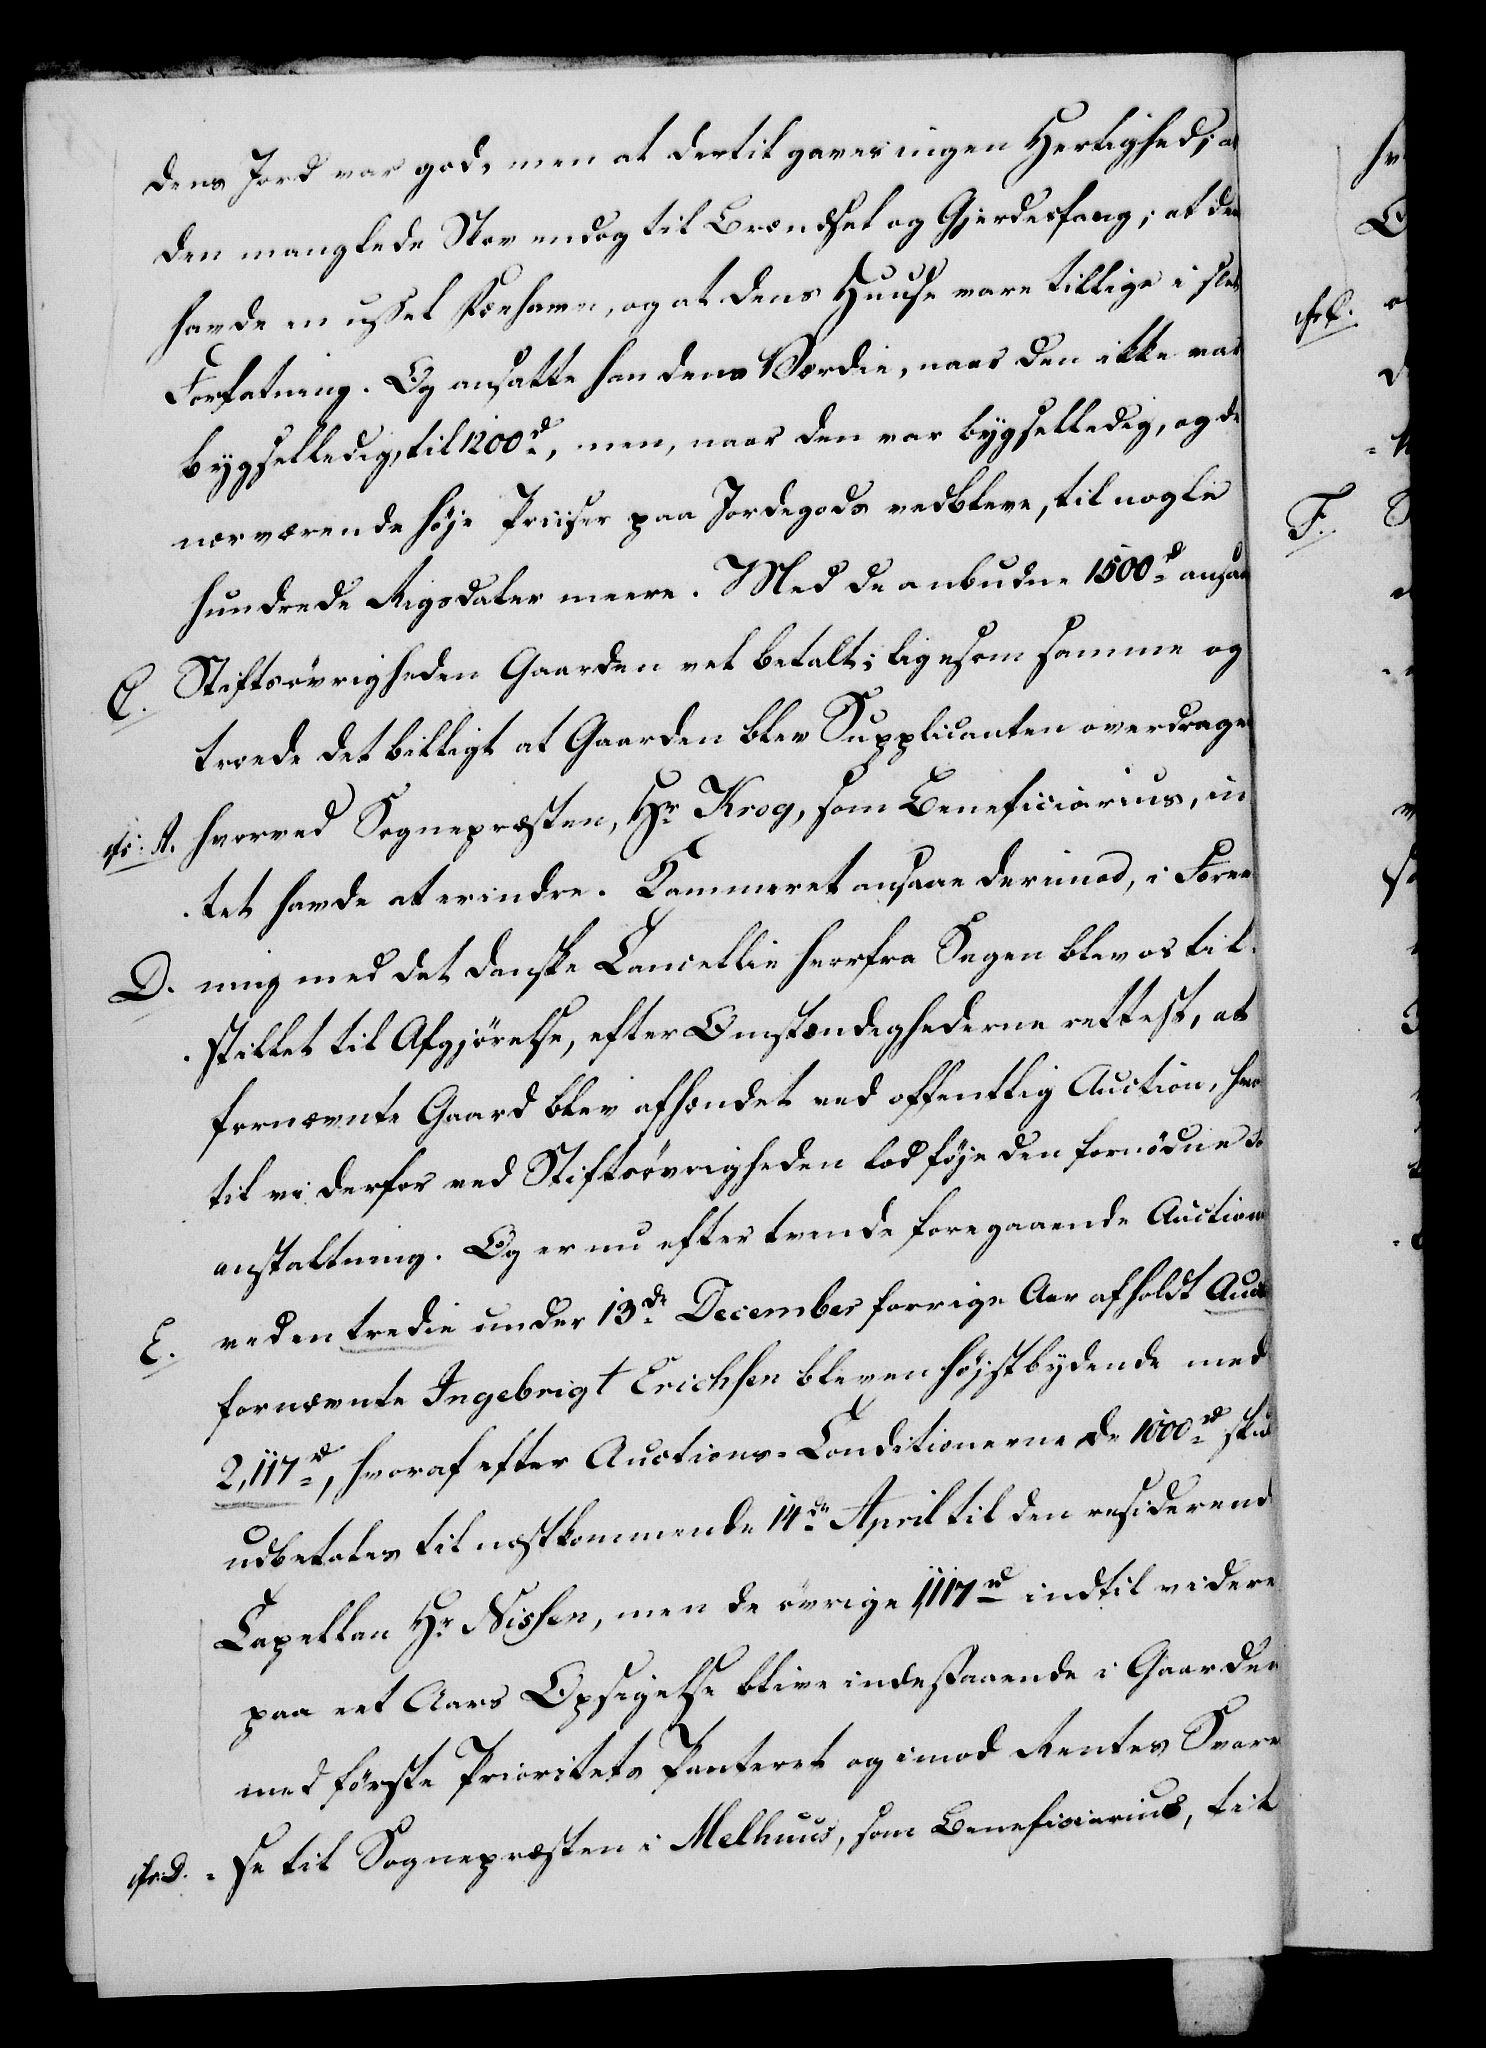 dens Jord var god, men at dertil gaves ingen Herlighed; at
den manglede Skov endog til Brændsel og Gjerdesfang; at den
havde en ussel Fæehavn, og at dens Huuse vare tillige i slet
Forfatning. Og ansatte han dens Værdie, naar den ikke var
bygselledig, til 1200 rd, men, naar den var bygselledig, og de
nærværende høje Priiser paa Jordegods vedbleve, til nogle
hundrede Rigsdaler meere. Med de anbudne 1500 rd ansaae
C. Stiftsøvrigheden Gaarden vel betalt; ligesom samme og
troede det billigt at Gaarden blev Supplicanten overdraget
cfr: A. hvorved Sognepræsten, Hr Krog, som Beneficiarius, in
tet havde at erindre. Kammeret ansaae derimod, i Foree
D. ning med det danske Cancellie herfra Sagen blev os til-
stillet til Afgjørelse, efter Omstændighederne rettest, at
fornævnte Gaard blev afhændet ved offentlig Auction, hvor
til vi derfor ved Stiftsøvrigheden lod føje den fornødne
anstaltning. Og er nu efter tvende foregaaende Auctioner
E. ved en tredie under 13de December forrige Aar afholdt Auct
fornævnte Ingebrigt Erichsen bleven højstbydende med
2,117 rd, hvoraf efter Auctions-Conditionerne de 1000 rd skal
udbetales til næstkommende 14de April til den residerende
Capellan Hr Nissen, men de øvrige 1,117 rd indtil videre
paa eet Aars Opsigelse blive indestaaende i Gaarden
med første Prioritets Panteret og imod Rentes Svare
cfr: D. se til Sognepræsten i Melhuus, som Beneficiarius, til
F.